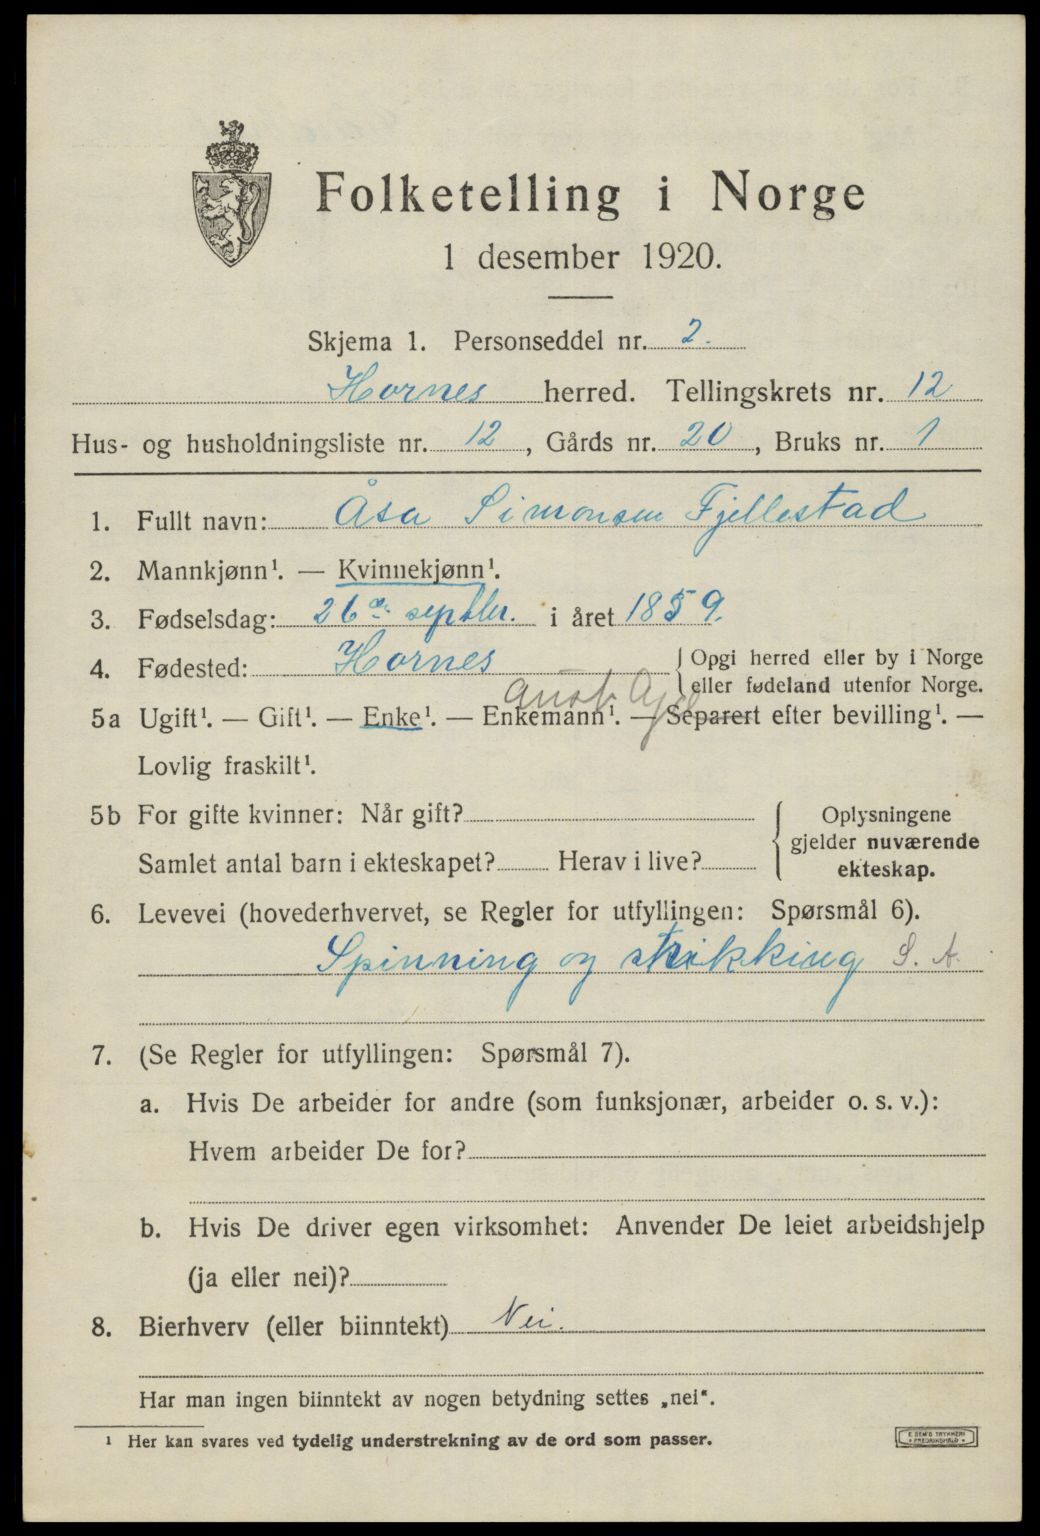 Folketelling i Norge
1 desember 1920.
Skjema 1. Personseddel nr. 2.
Hornes herred. Tellingskrets nr. 12
Hus- og husholdningsliste nr. 12, Gårds nr. 20, Bruks nr. 1
1. Fullt navn: Åsa Simonsen Fjellestad
2. Mannkjønn¹. — Kvinnekjønn¹.
3. Fødselsdag: 26de septbr. i året 1859.
4. Fødested: Hornes { Opgi herred eller by i Norge
eller fødeland utenfor Norge.
Aust Agd
5a Ugift¹. — Gift¹. — Enke¹. — Enkemann¹. — Separert efter bevilling¹. —
Lovlig fraskilt¹.
5b For gifte kvinner: Når gift?
Samlet antal barn i ekteskapet? Herav i live?
{ Oplysningene
gjelder nuværende
ekteskap.
6. Levevei (hovederhvervet, se Regler for utfyllingen: Spørsmål 6).
Spinning og strikking S. A.
7. (Se Regler for utfyllingen: Spørsmål 7).
a. Hvis De arbeider for andre (som funksjonær, arbeider o. s. v.):
Hvem arbeider De for?
b. Hvis De driver egen virksomhet: Anvender De leiet arbeidshjelp
(ja eller nei)?
8. Bierhverv (eller biinntekt) Nei.
Har man ingen biinntekt av nogen betydning settes „nei“.
¹ Her kan svares ved tydelig understrekning av de ord som passer.
E SEM'S TRYKKERI
• FREDRIKSHALD •